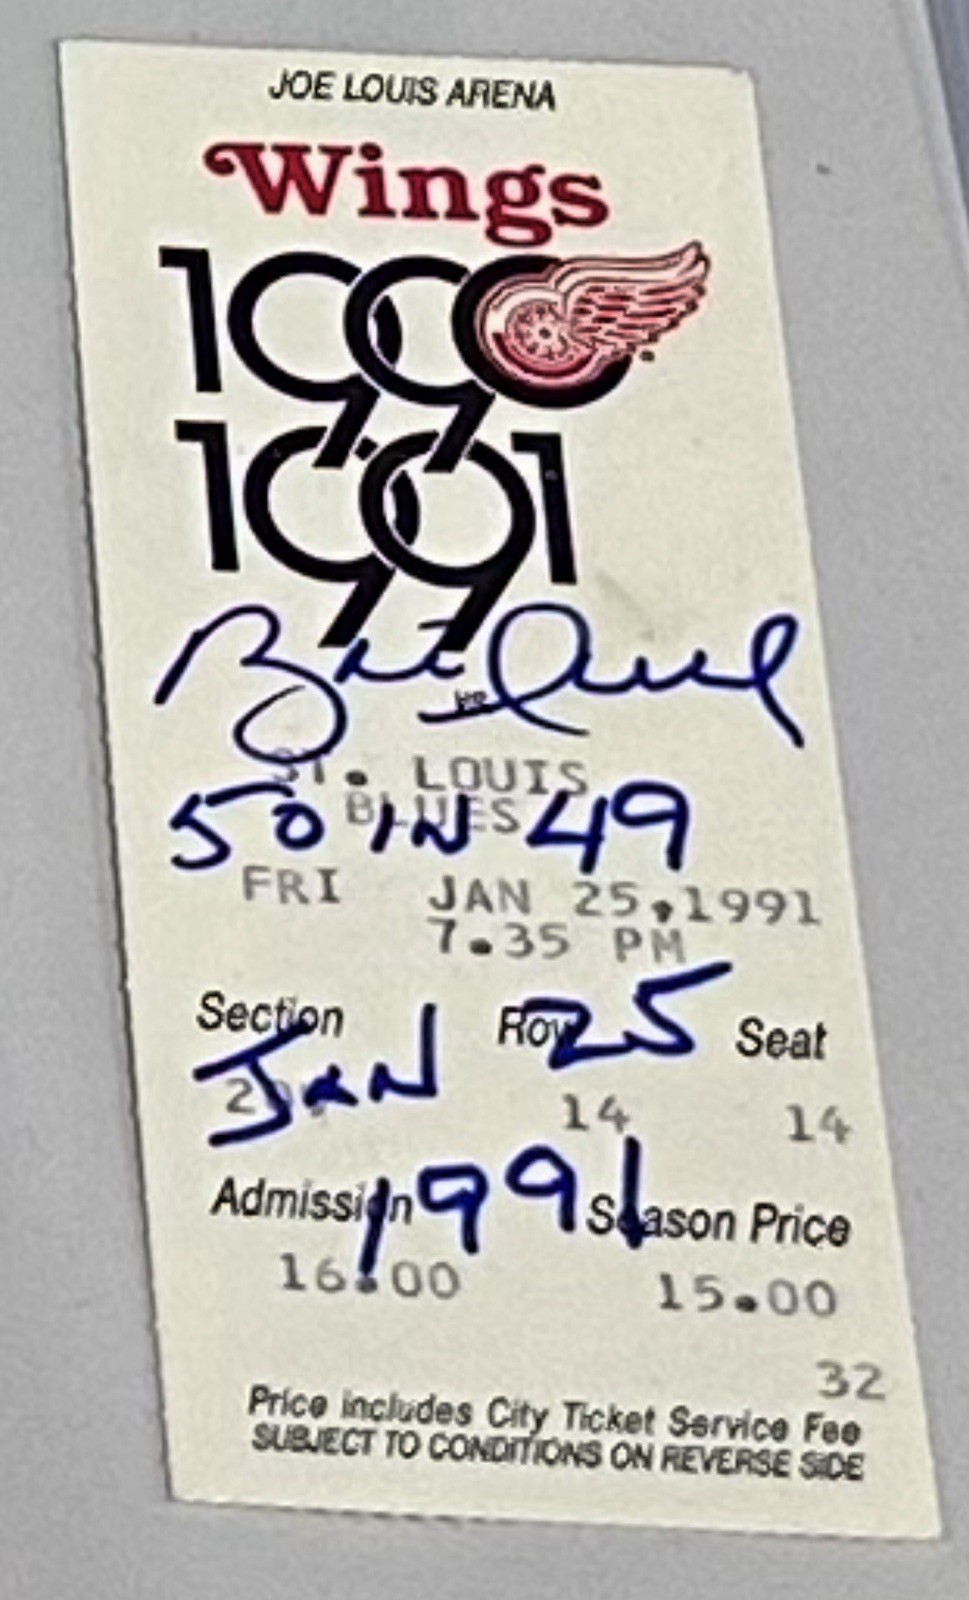 JOE LOUIS ARENA
Wings
1990
1991
Brett Hull
ST. LOUIS
BLUES
50 IN 49
FRI JAN 25,1991
7.35 PM
Section Row Seat
JAN 25
14 14
1991
Admission Season Price
16.00 15.00
32
Price includes City Ticket Service Fee
SUBJECT TO CONDITIONS ON REVERSE SIDE